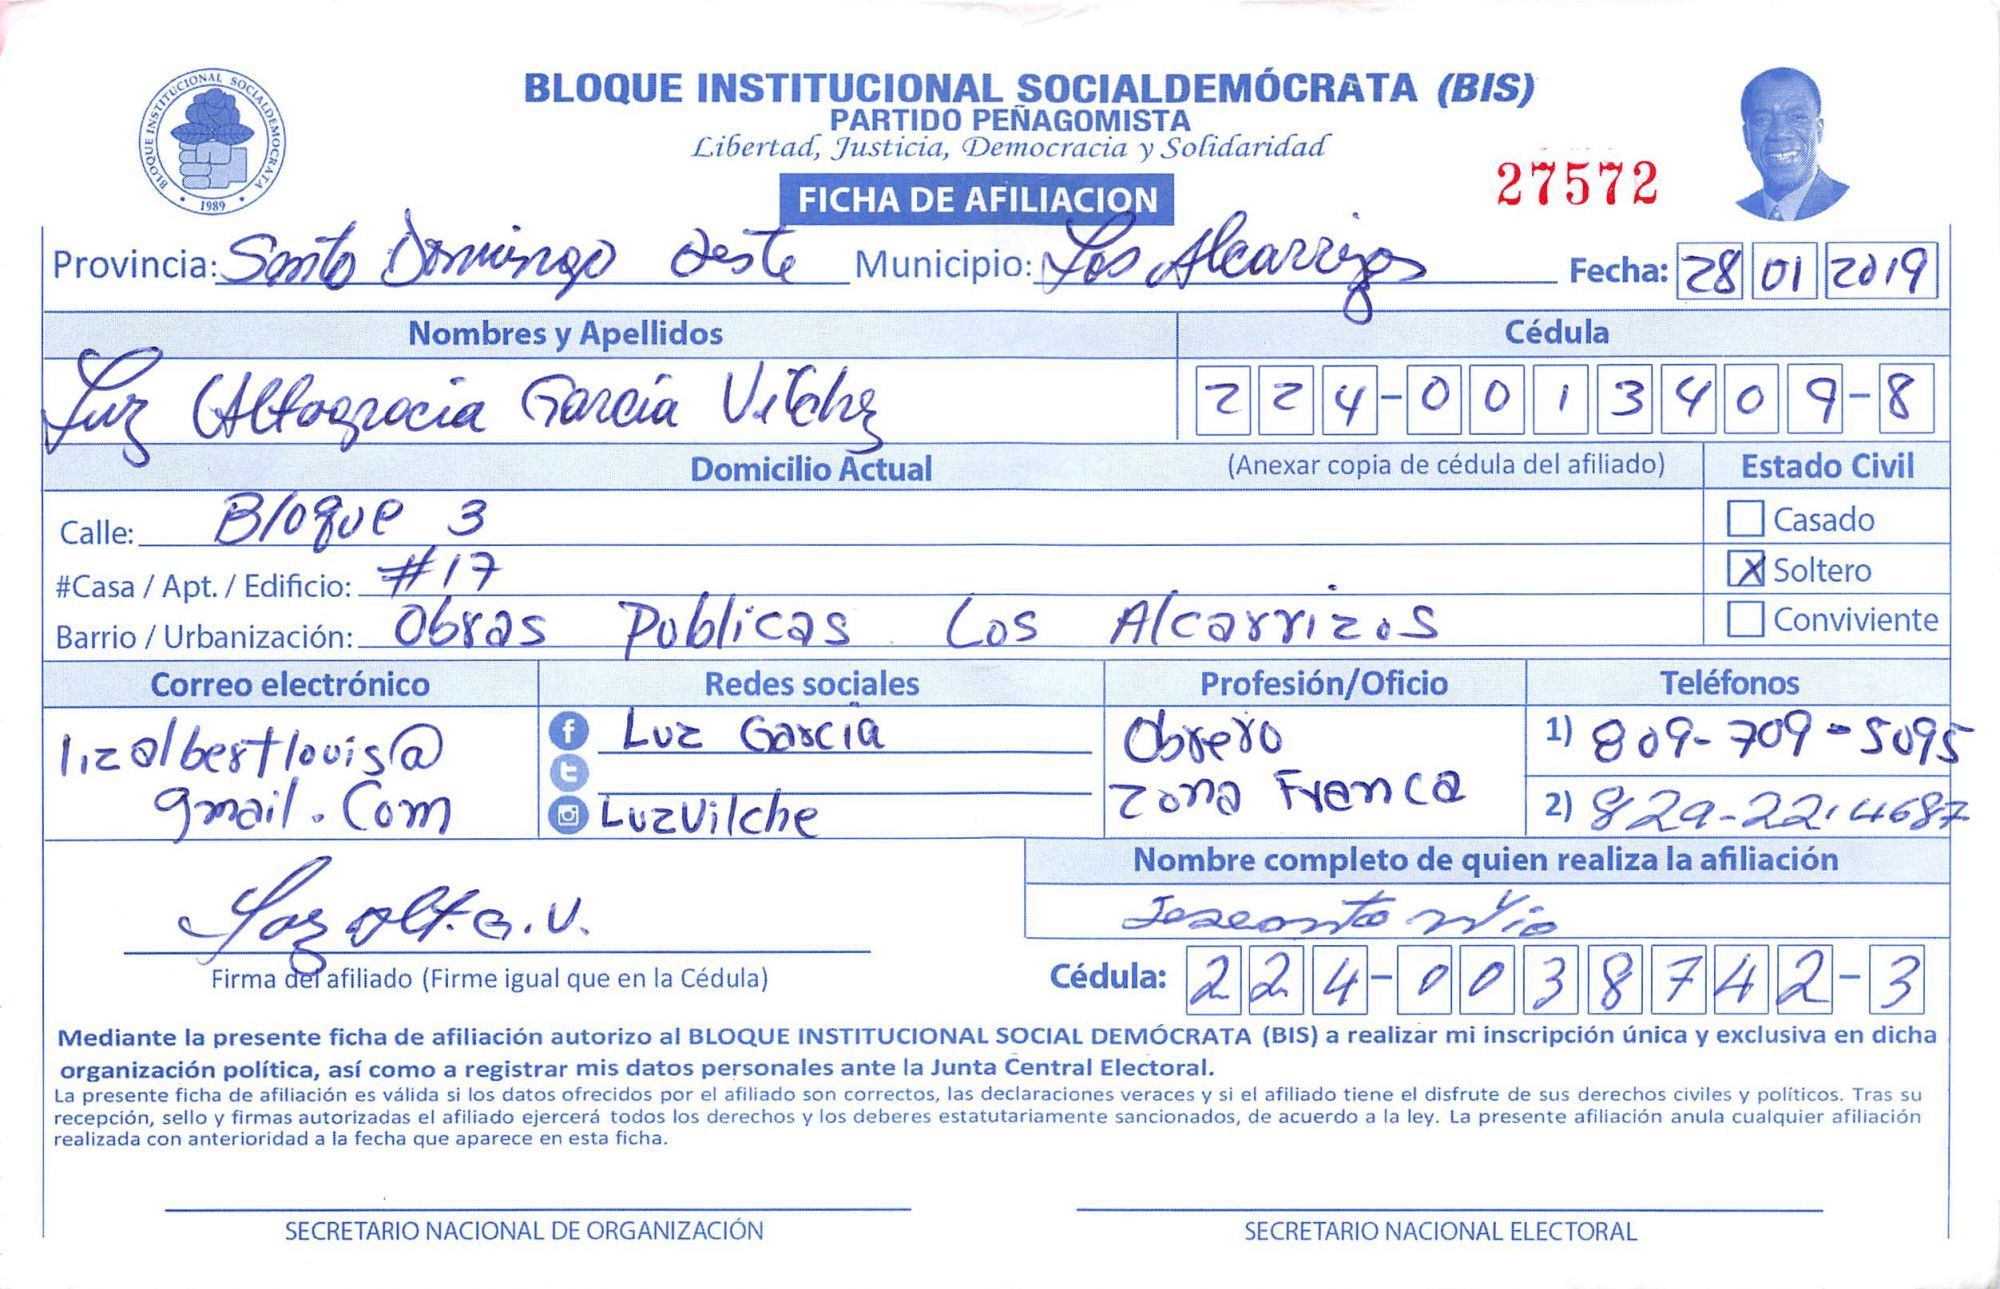 BLOQUE INSTITUCIONAL SOCIALDEMOCRATA
1989
BLOQUE INSTITUCIONAL SOCIALDEMÓCRATA (BIS)
PARTIDO PEÑAGOMISTA
Libertad, Justicia, Democracia y Solidaridad
FICHA DE AFILIACION
27572
Provincia: Santo Domingo Oeste Municipio: Los Alcarrizos Fecha: 28 01 2019
Nombres y Apellidos Cédula
Luz Altagracia García Vilche 224-0013409-8
Domicilio Actual (Anexar copia de cédula del afiliado) Estado Civil
Calle: Bloque 3 Casado
#Casa / Apt. / Edificio: #17 X Soltero
Barrio / Urbanización: Obras Publicas Los Alcarrizos Conviviente
Correo electrónico Redes sociales Profesión/Oficio Teléfonos
lizalbertlouis@ Luz García Obrero 1) 809-709-5095
gmail.com LuzVilche Zona Franca 2) 829-22-4687
Nombre completo de quien realiza la afiliación
Luz Alt. G. V.
Firma del afiliado (Firme igual que en la Cédula) Cédula: 224-0038742-3
Mediante la presente ficha de afiliación autorizo al BLOQUE INSTITUCIONAL SOCIAL DEMÓCRATA (BIS) a realizar mi inscripción única y exclusiva en dicha
organización política, así como a registrar mis datos personales ante la Junta Central Electoral.
La presente ficha de afiliación es válida si los datos ofrecidos por el afiliado son correctos, las declaraciones veraces y si el afiliado tiene el disfrute de sus derechos civiles y políticos. Tras su
recepción, sello y firmas autorizadas el afiliado ejercerá todos los derechos y los deberes estatutariamente sancionados, de acuerdo a la ley. La presente afiliación anula cualquier afiliación
realizada con anterioridad a la fecha que aparece en esta ficha.
SECRETARIO NACIONAL DE ORGANIZACIÓN SECRETARIO NACIONAL ELECTORAL